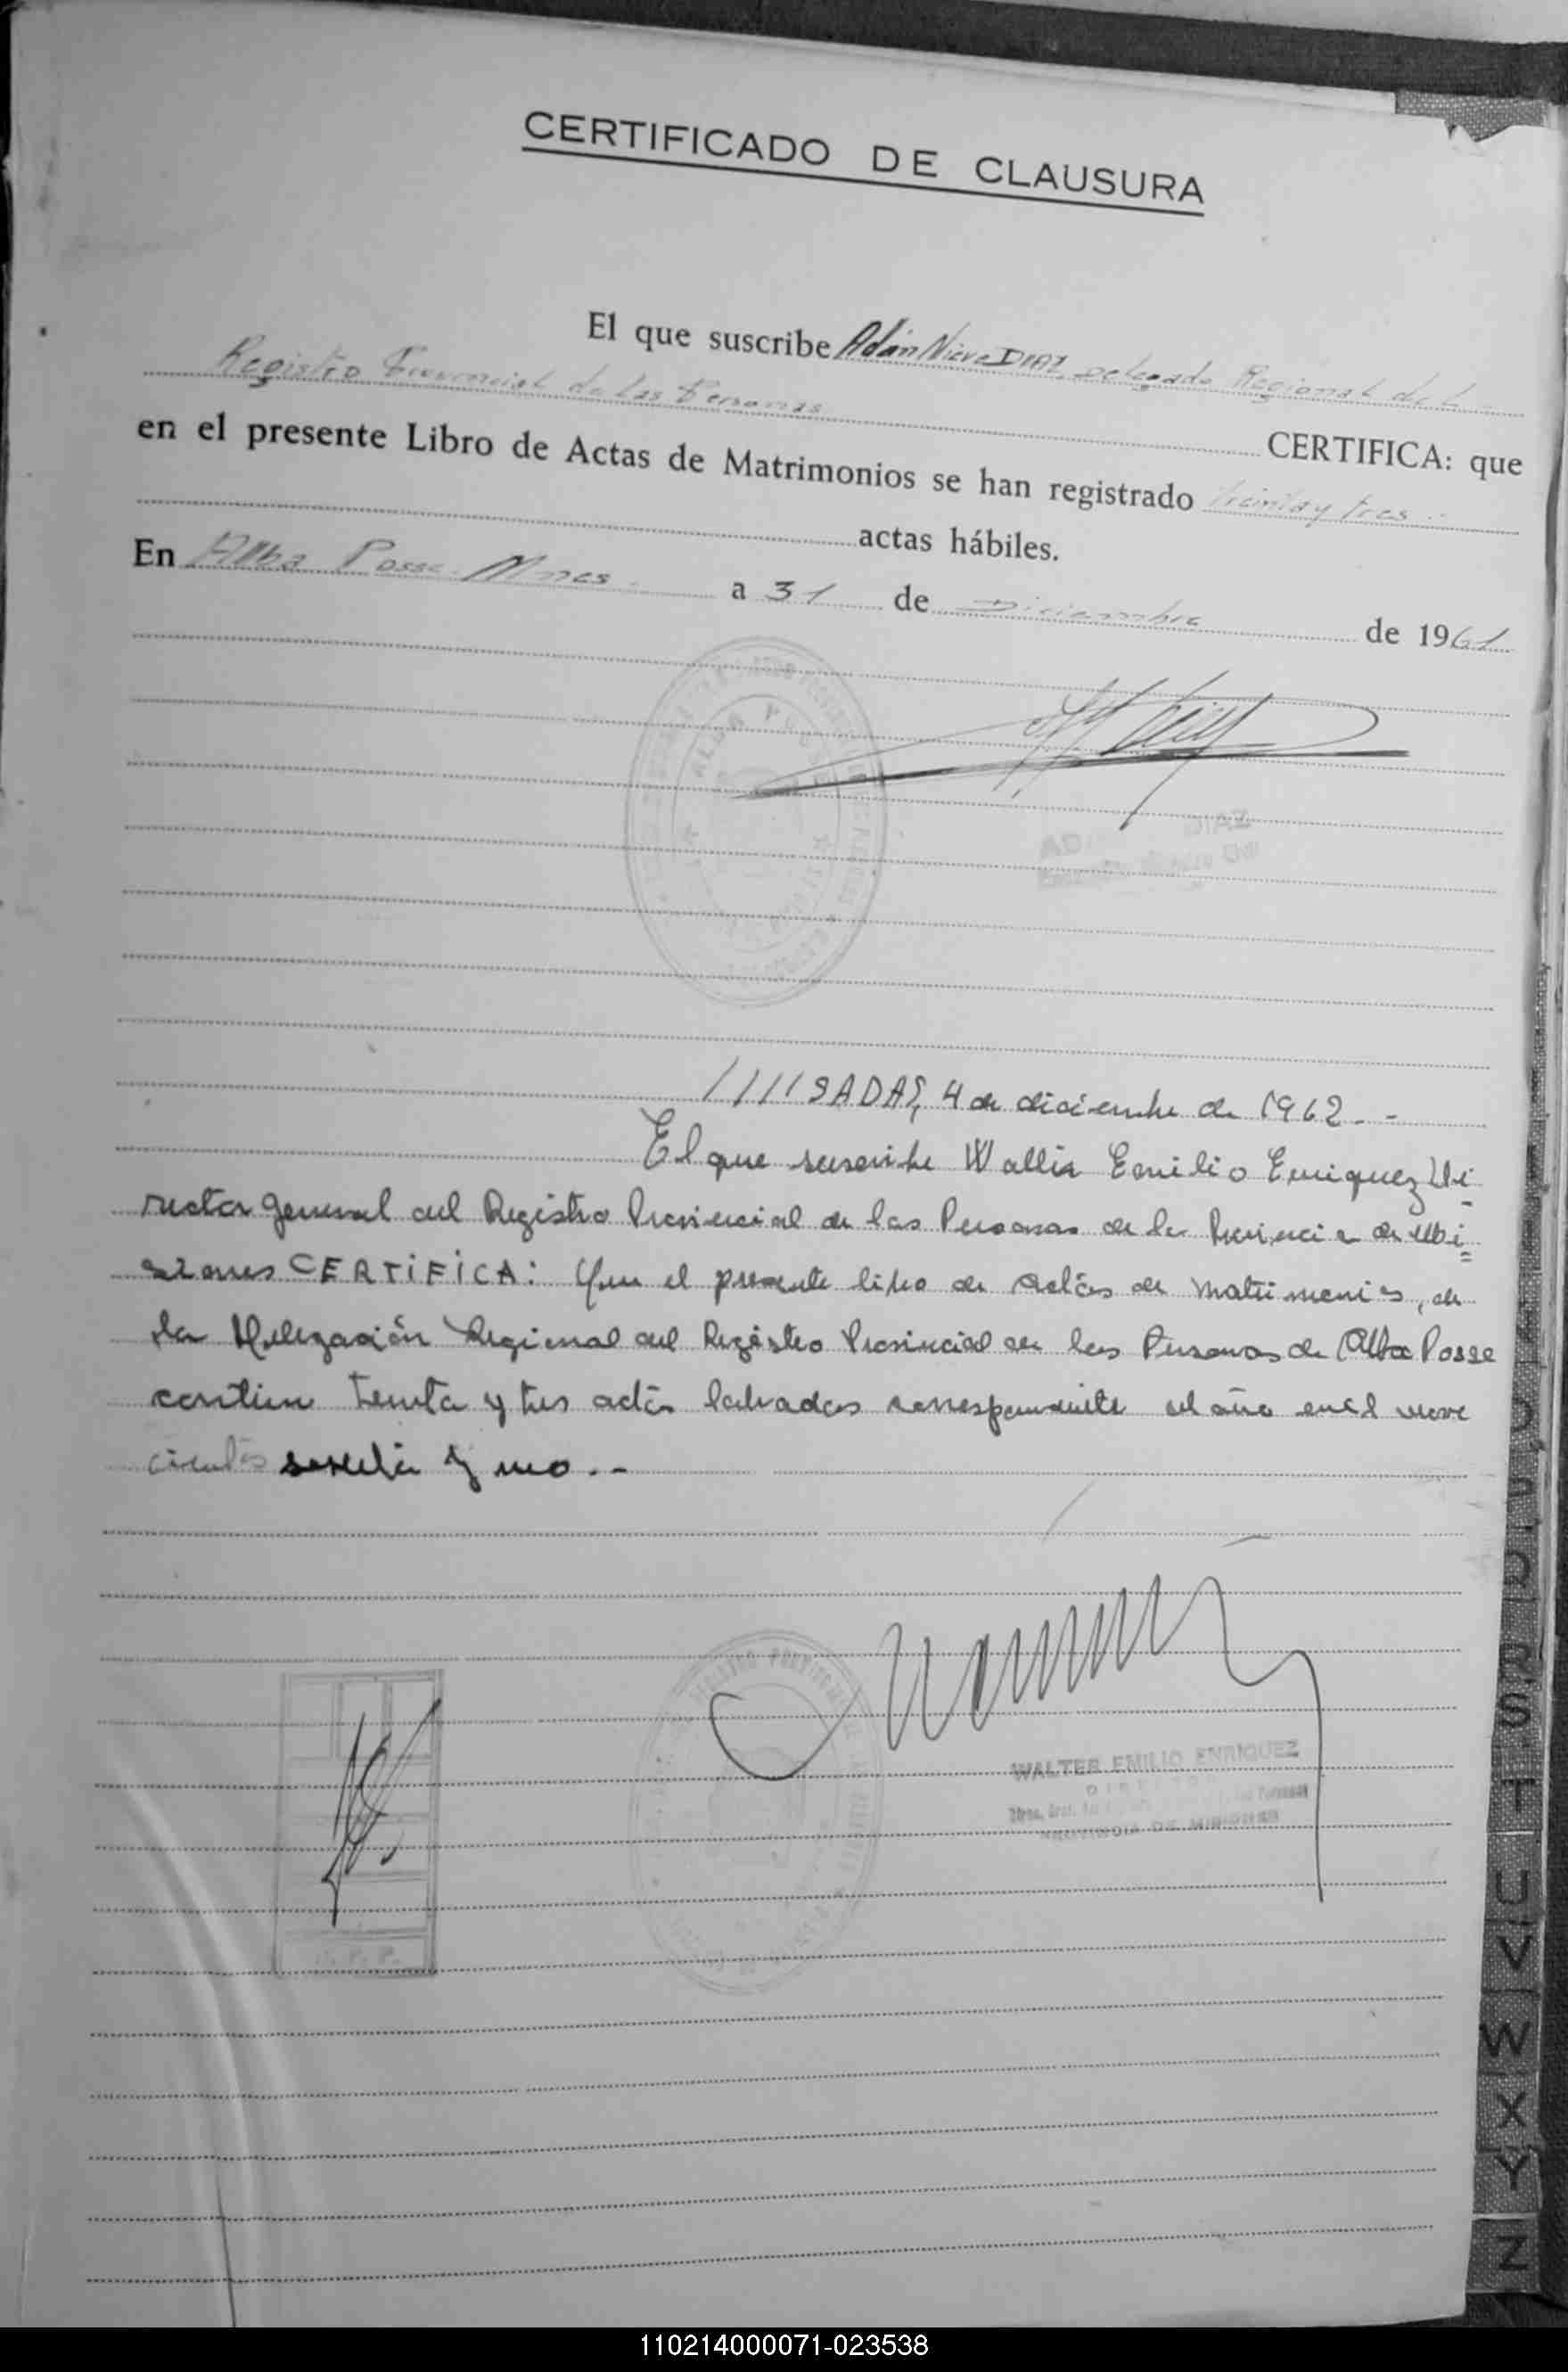 CERTIFICADO DE CLAUSURA
El que suscribe Adán Nieve DIAZ, Delegado Regional del
Registro Provincial de las Personas CERTIFICA: que
en el presente Libro de Actas de Matrimonios se han registrado treinta y tres
actas hábiles.
En Alba Posse - Mnes a 31 de Diciembre de 1961
ALBA POSSE
DIAZ
////SADAS, 4 de diciembre de 1962.-
El que suscribe Walter Emilio Enriquez Di
rector General del Registro Provincial de las Personas de la Provincia de Mi
siones CERTIFICA: Que el presente libro de actas de matrimonios, de
la Delegación Regional del Registro Provincial de las Personas de Alba Posse
contiene treinta y tres actas labradas correspondiente al año mil nove
cientos sesenta y uno.-
WALTER EMILIO ENRIQUEZ
DIRECTOR
PROVINCIA DE MISIONES
O
P
Q
R
S
T
U
V
W
X
Y
Z
110214000071-023538